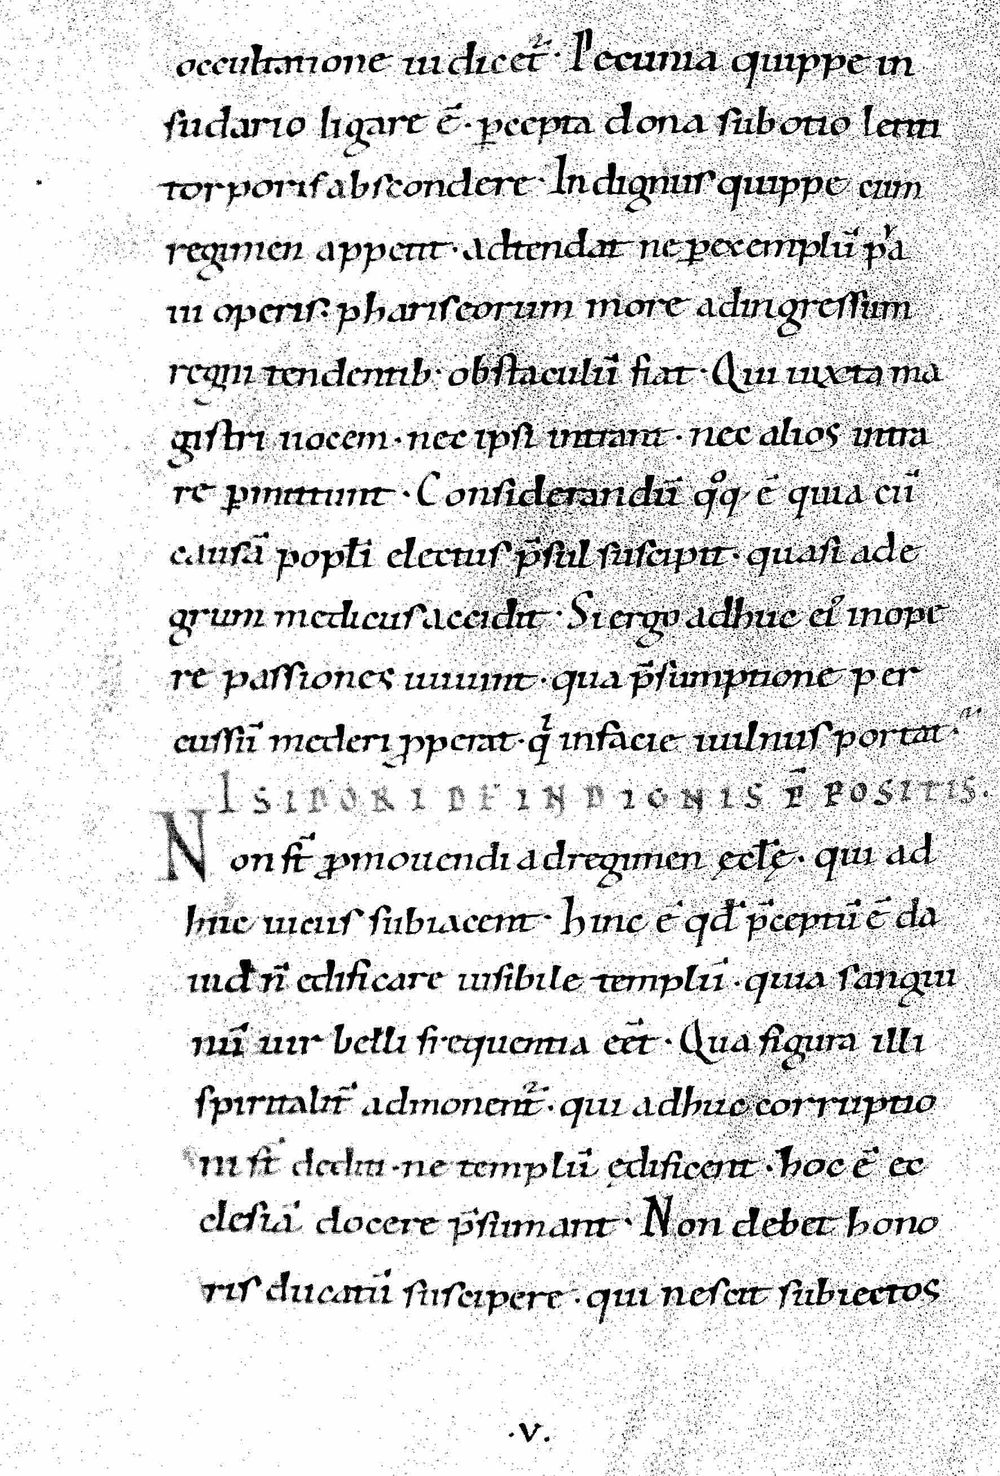 occultatione iudicet᷑· Pecunia quippe in
sudario ligare ē· ꝑcepta dona sub otio lenti
torporis abscondere· Indignus quippe cum
regimen appetit· adtendat ne ꝑ exemplū pͥa
ui operis· phariseorum more ad ingressum
regni tendentib· obstaculū fiat· Qui iuxta ma
gistri uocem· nec ipsi intrant· nec alios intra
re ꝑmittunt· Considerandū qͦq· ē quia cū
causā popłi electus p̄sul suscipit· quasi ad e
grum medicus accidit· Si ergo adhuc ei᷑ in ope
re passiones uiuunt· qua p̄sumptione per
cussū mederi ꝓperat· qͥ in facie uulnus portat᷑·
ISIDORI DE INDIGNIS P̄POSITIS.
Non st̄ ꝓmouendi ad regimen ęcl̄ę· qui ad
huc uiciis subiacent· hinc ē qđ p̄ceptū ē da
uid n̄ edificare uisibile templū· quia sangui
nū uir belli frequentia eēt· Qua figura illi
spiritalit̄ admonent᷑· qui adhuc corruptio
ni st̄ dediti· ne templū ędificent· hoc ē ec
clesiā docere p̄sumant· Non debet hono
ris ducatū suscipere· qui nescit subiectos
·V·